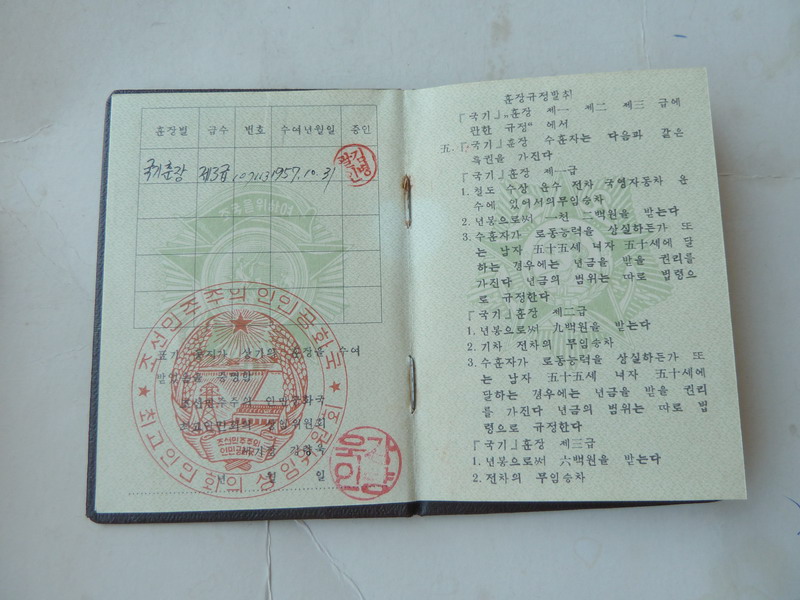 훈장별 급수 번호 수여년월일 증인
국기훈장 제3급 1957.10.31
조국을위하여
표기 동지가 상기의 훈장을 수여
받았음을 증명함
조선민주주의 인민공화국
최고인민회의 상임위원회
서기장 강량욱
년 월 일
조선민주주의인민공화국
최고인민회의 상임위원회
조선민주주의
인민공화국
훈장규정발취
『국기』훈장 제一 제二 제三 급에
관한 규정" 에서
五. 『국기』훈장 수훈자는 다음과 같은
특권을 가진다
『국기』훈장 제一급
1. 철도 수상 운수 전차 국영자동차 운
수에 있어서의무임승차
2. 년봉으로써 一천 二백원을 받는다
3. 수훈자가 로동능력을 상실하든가 또
는 남자 五十五세 녀자 五十세에 달
하는 경우에는 년금을 받을 권리를
가진다 년금의 범위는 따로 법령으
로 규정한다
『국기』훈장 제二급
1. 년봉으로써 九백원을 받는다
2. 기차 전차의 무임승차
3. 수훈자가 로동능력을 상실하든가 또
는 남자 五十五세 녀자 五十세에
달하는 경우에는 년금을 받을 권리
를 가진다 년금의 범위는 따로 법
령으로 규정한다
『국기』훈장 제三급
1. 년봉으로써 六백원을 받는다
2. 전차의 무임승차